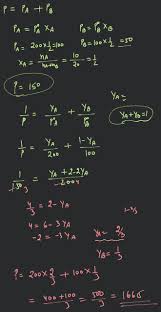 P = PA + PB
PA = P°A XA PB = P°B XB
PA = 200 × 1/2 = 100 PB = 100 × 1/2 = 50
XA = nA/(nA+nB) = 10/20 = 1/2
P = 150
YA =
1/P = YA/P°A + YB/P°B YA + YB = 1
1/P = YA/200 + 1-YA/100
1/150 = YA + 2 - 2YA/200
4/3 = 2 - YA
4 = 6 - 3YA
-2 = -3YA YA = 2/3
YB = 1/3
P = 200 × 2/3 + 100 × 1/3
= 400 + 100/3 = 500/3 =